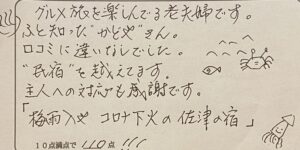 グルメ旅を楽しんでる老夫婦です。
ふと知った"かどや"さん。
口コミに違いなしでした。
"民宿"を越えてます。
主人への対応も感謝です。
「梅雨入や コロナ下火の 佐津の宿」
10点満点で 110点!!!